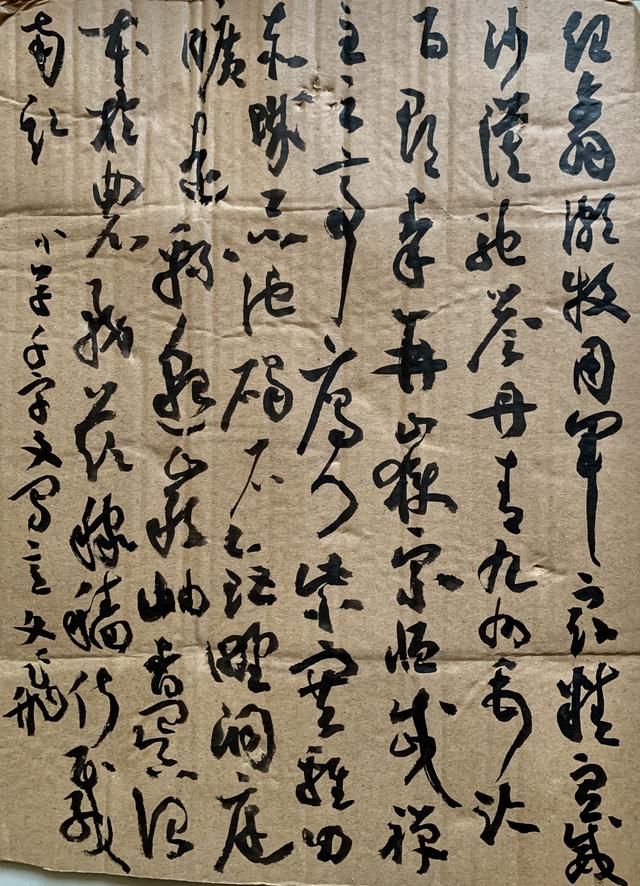 起翦頗牧用軍最精宣威
沙漠馳譽丹青九州禹跡
百郡秦并嶽宗恒岱禪
主云亭雁門紫塞雞田
赤城昆池碣石鉅野洞庭
曠遠綿邈巖岫杳冥治
本於農務茲稼穡俶載
南畝
小草千字文写意